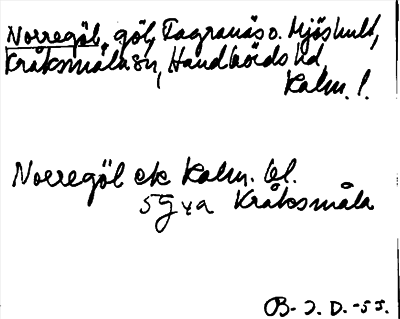 Norregöl, göl, Fagranäs o. Mjöshult,
Kråksmåla sn, Handbörds hd,
Kalm. l.
Norregöl ek Kalm. bl.
5 g v a Kråksmåla
B. J. D. -55.